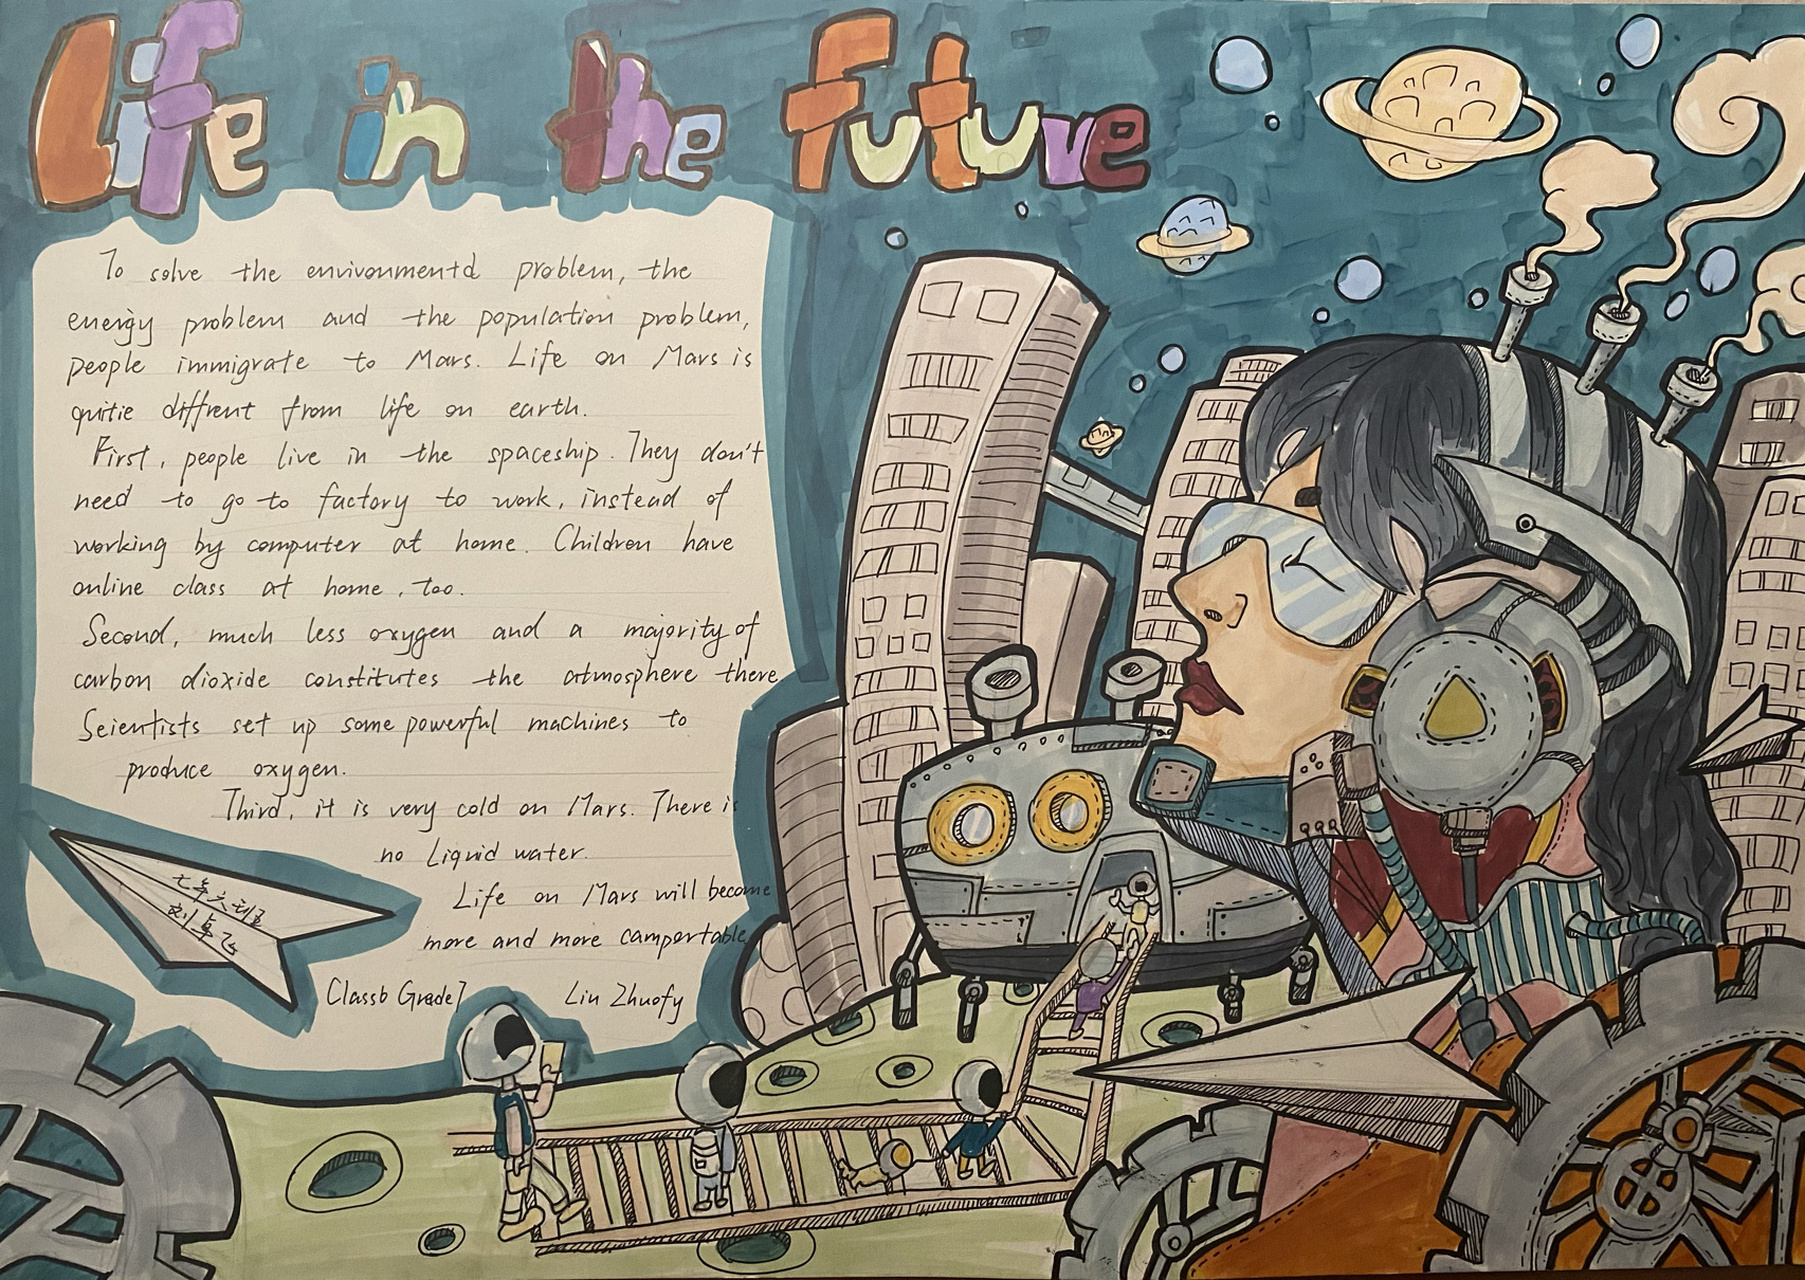 Life in the future
To solve the environmentd problem, the
energy problem and the population problem,
people immigrate to Mars. Life on Mars is
quitie diffrent from life on earth.
First, people live in the spaceship. They don't
need to go to factory to work, instead of
working by computer at home. Children have
online class at home, too.
Second, much less oxygen and a majority of
carbon dioxide constitutes the atmosphere there
Seientists set up some powerful machines to
produce oxygen.
Third, it is very cold on Mars. There is
no Liquid water.
Life on Mars will become
more and more campertable
七年六班
刘卓飞
Class6 Grade7 Liu Zhuofy